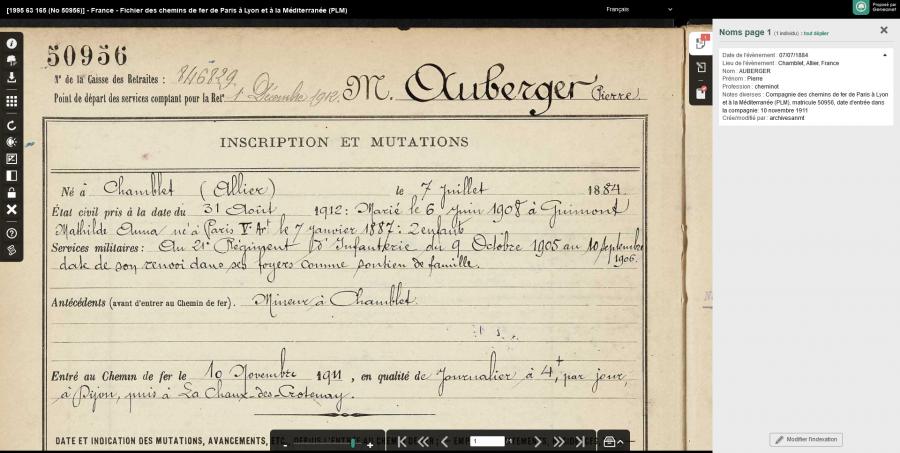 [1995 63 165 (No 50956)] - France - Fichier des chemins de fer de Paris à Lyon et à la Méditerranée (PLM)
Français
Proposé par
Geneanet
50956
N° de la Caisse des Retraites : 846829
Point de départ des services comptant pour la Ret 1 Décembre 1912.
M. Auberger Pierre
INSCRIPTION ET MUTATIONS
Né à Chamblet (Allier) le 7 Juillet 1884.
État civil pris à la date du 31 Août 1912: Marié le 6 Juin 1908 à Guimont
Mathilde Anna née à Paris V Arᵗ le 7 Janvier 1887: 2 enfants
Services militaires: Au 21ᵉ Régiment d'Infanterie du 9 Octobre 1905 au 10 septembre 1906.
date de son renvoi dans ses foyers comme soutien de famille.
Antécédents (avant d'entrer au Chemin de fer). Mineur à Chamblet.
Entré au Chemin de fer le 10 Novembre 1911, en qualité de Journalier à 4, par jour,
à Dijon, puis à La Chaux-des-Crotenay.
DATE ET INDICATION DES MUTATIONS, AVANCEMENTS,
- +
1
Noms page 1 (1 individu) : tout déplier
Date de l'événement : 07/07/1884
Lieu de l'événement : Chamblet, Allier, France
Nom : AUBERGER
Prénom : Pierre
Profession : cheminot
Notes diverses : Compagnie des chemins de fer de Paris à Lyon
et à la Méditerranée (PLM), matricule 50956, date d'entrée dans
la compagnie: 10 novembre 1911
Créé/modifié par : archivesanmt
Modifier l'indexation